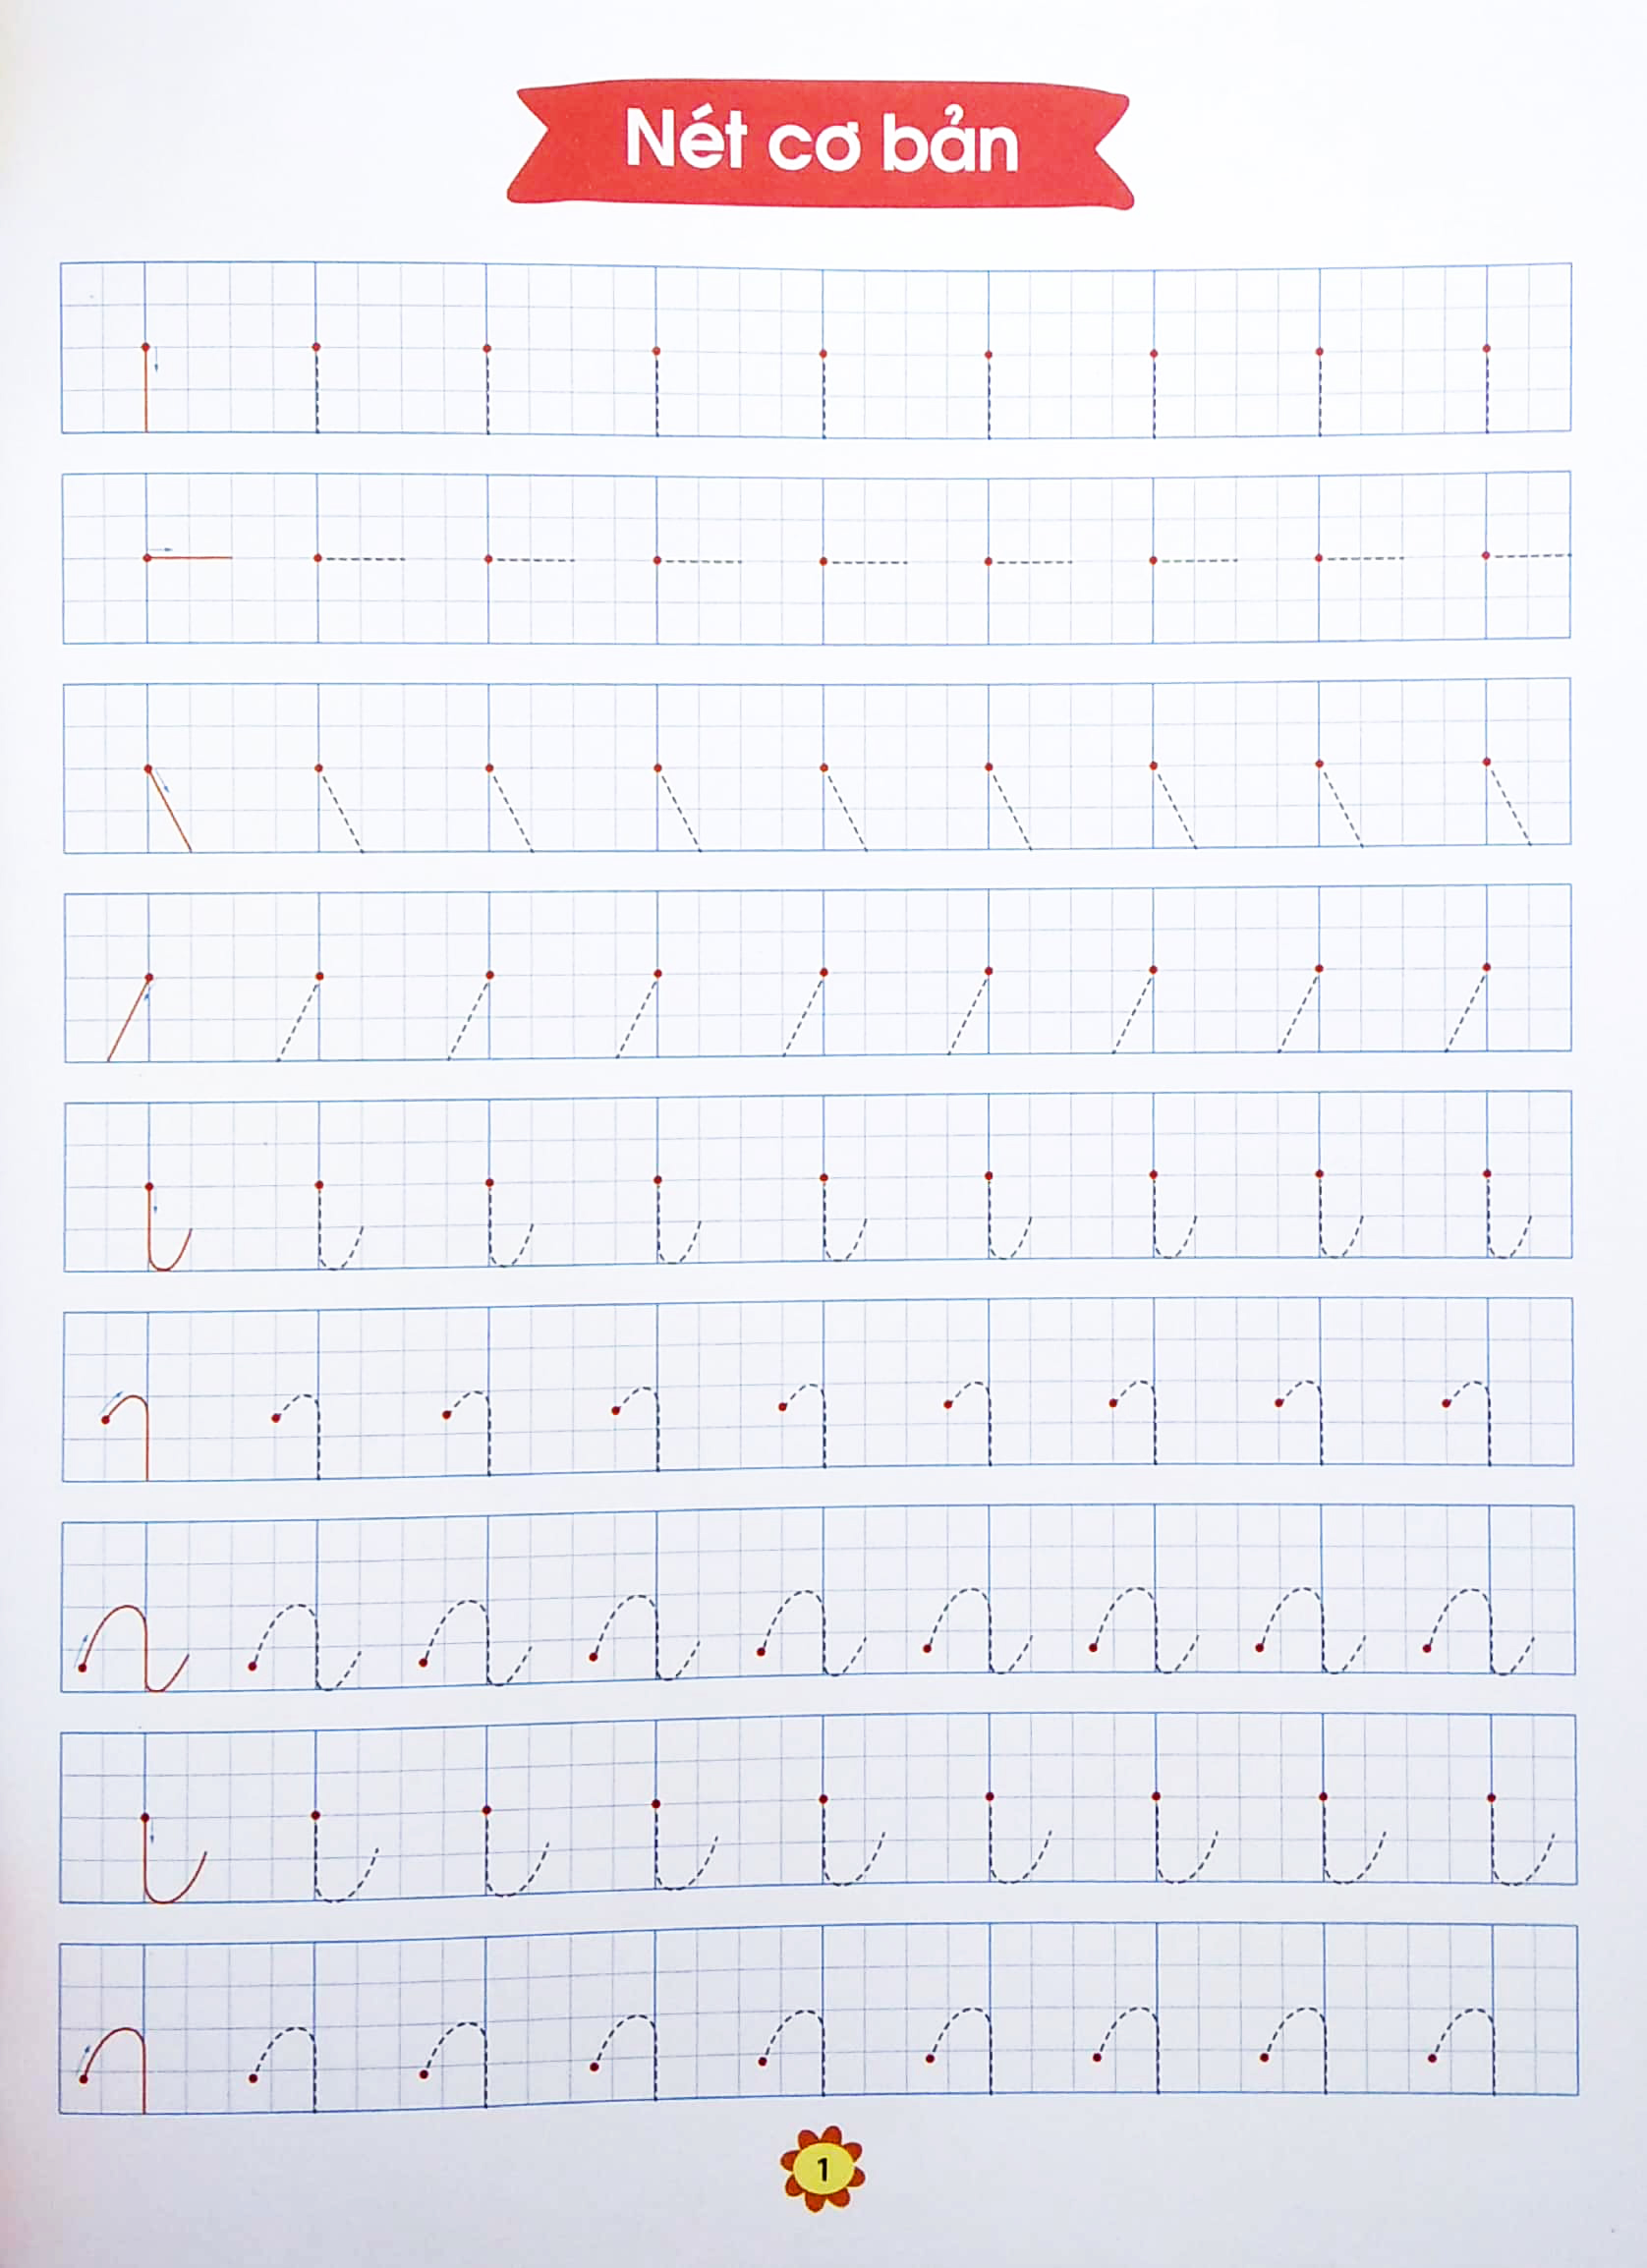 Nét cơ bản
1